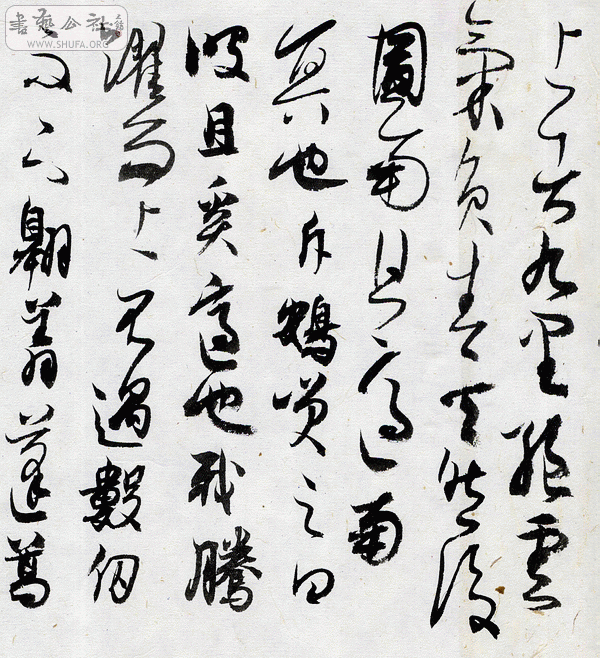 上者九里絕雲
氣負青天然後
圖南且適南
冥也斥鴳笑之曰
彼且奚適也我騰
躍而上不過數仞
而下翱翔蓬蒿
書藝公社
WWW.SHUFA.ORG